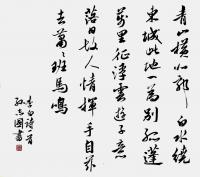 青山横北郭白水绕
东城此地一为别孤蓬
万里征浮云游子意
落日故人情挥手自兹
去萧萧班马鸣
李白诗一首
孙志国书